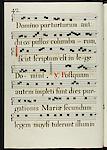 42
Domino par turturum aut
duos pullos columba rum,
sicut scriptum est in le ge
Domi ni. V. Postquam
autem impleti sunt dies pur-
gationis Mariæ secundum
legem moysi tulerunt illum in